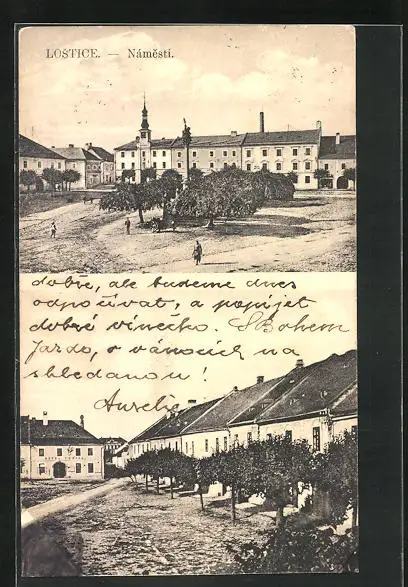 LOSTICE. — Náměstí.
dobře, ale budeme dnes
odpočívat, a popíjet
dobré vínečko. S Bohem
Jardo, o vánocích na
shledanou!